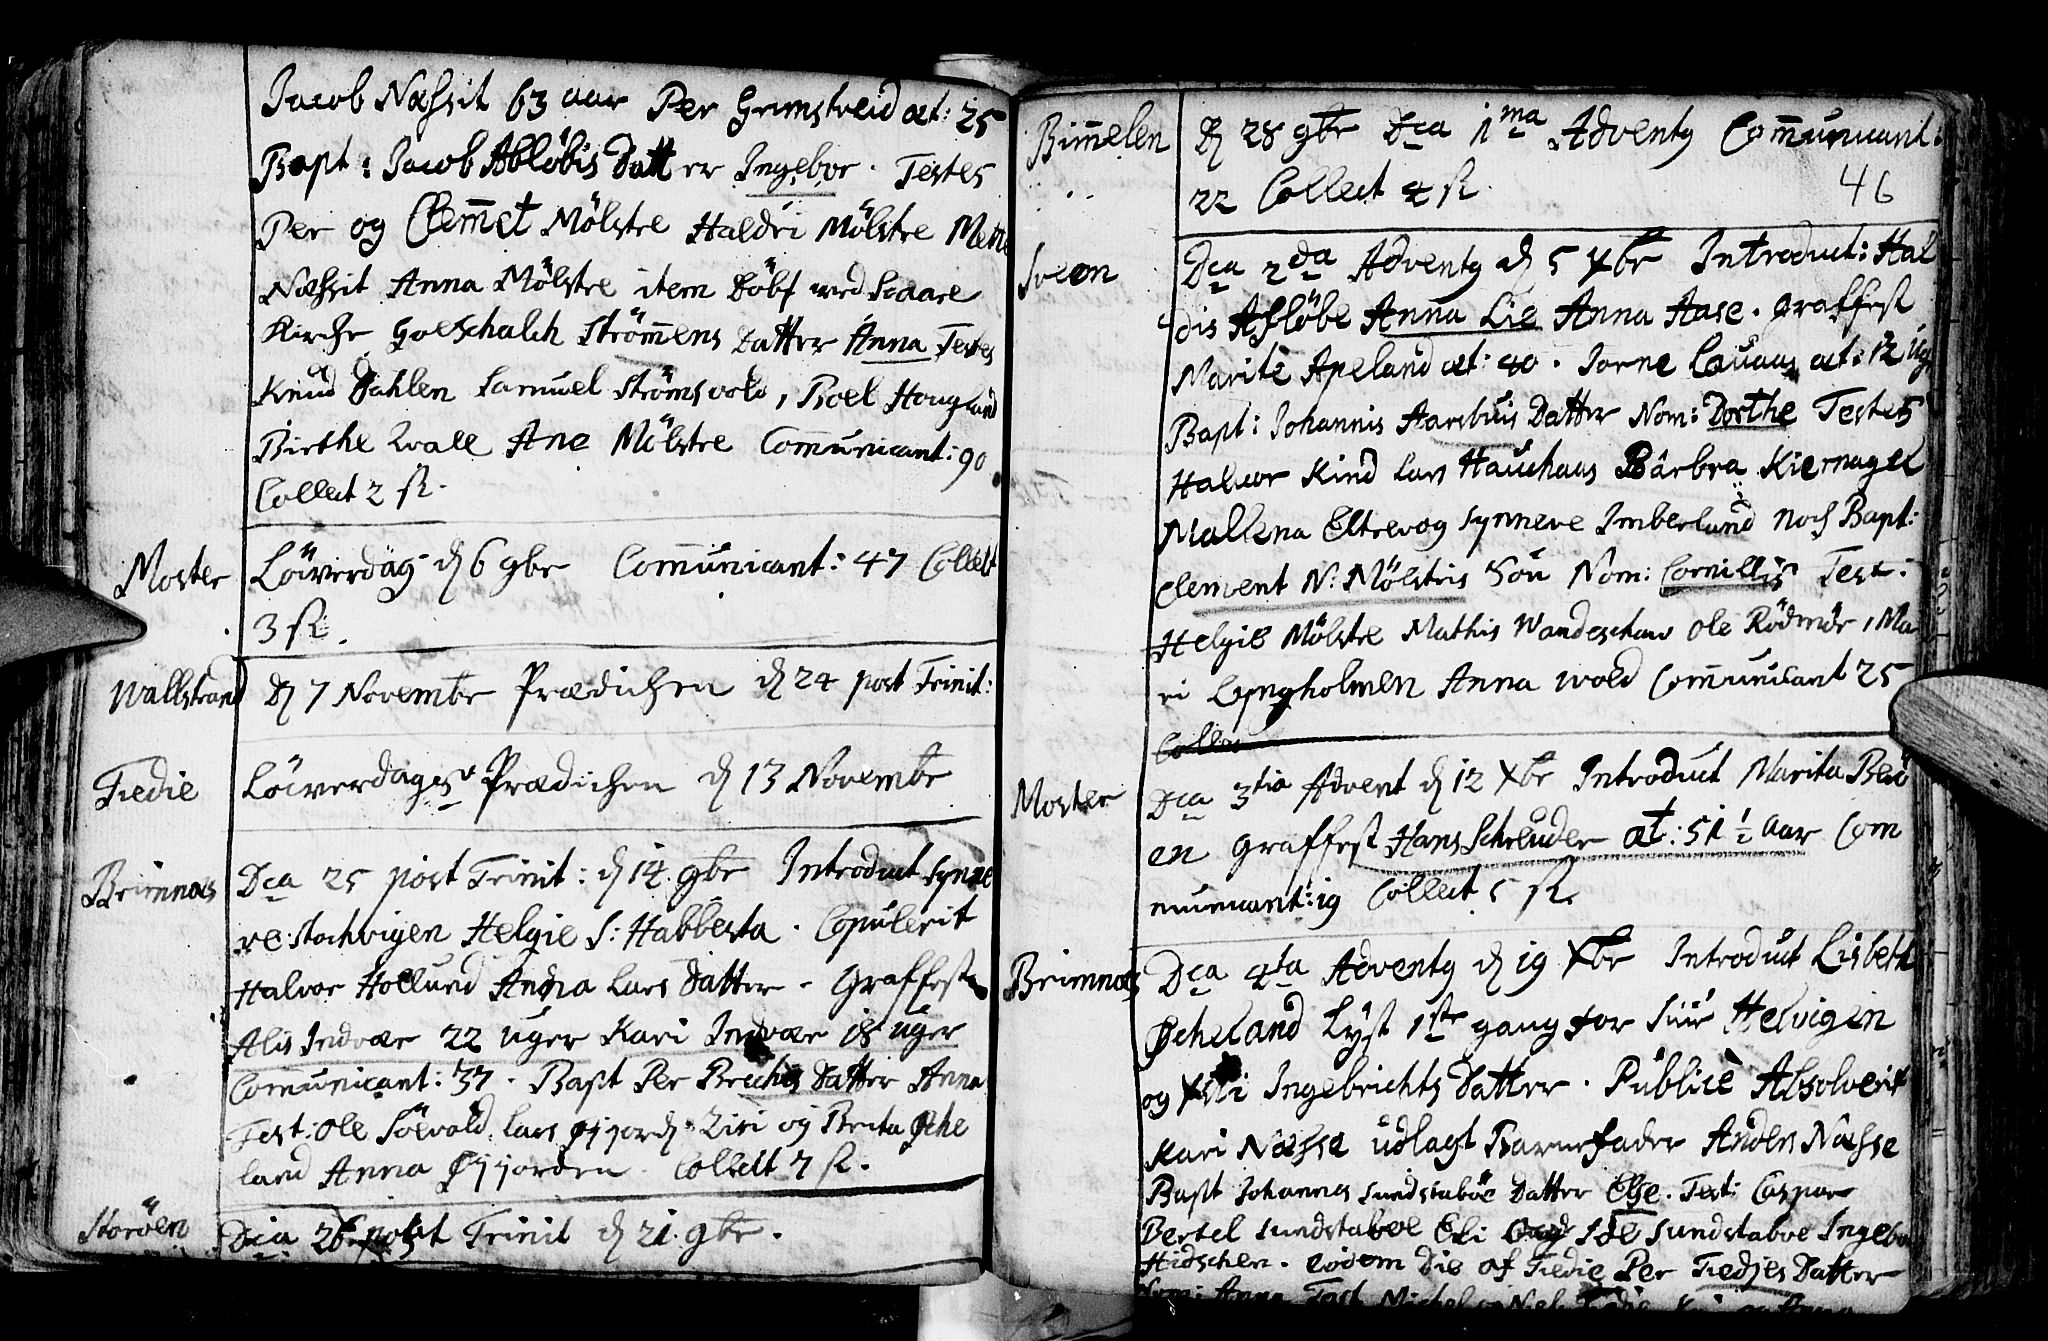 Jacob Næssit 63 aar Per Grimstveid æt: 25
Bapt: Jacob Abløbis Datter Ingebor. Testes
Per og Clemmet Mölstre Haldri Mölstre Mette
Næssit Anna Mölstre item Döbt wed Scaare
Kirche Goeschalch Strömmens Datter Anna Testes
Knud Dahlen Samuel Strömsvold, Roel Hougland
Birthe Wale Ane Mölstre Communicant: 90
Collect 2 sl.
Moster Löwerdag d 6 9br Communicant: 47 Collect
3 sl.
Wallstrand d 7 Novembr Prædichen d 24 post Trinit:
Tiedie Löwerdages Prædichen d 13 Novembr
Brimnæs Dca 25 post Trinit: d 14. 9br Introduct Synne
ve: Stochvigen Helgie S: Habbesta. Copulerit
Halvor Hollund Anna Lars Datter. Graffest
Alis Indvær 22 uger Kari Indvær 18 uger
Communicant: 37. Bapt Per Brechis Datter Anna
Test: Ole Söevold, Lars Øyjord, Ziri og Brita Øche
land Anna Øyjorden. Collect 7 sl.
Storöen Dca 26 post Trinit d 21. 9br.
Bimmelen d 28 9br Dca 1ma Advent Communicant:
22 Collect 4 sl. 46
Sveen Dca 2da Advent d 5 Xbr Introduct: Hal
dis Afløbe Anna Lie Anna Aase. Graffest
Marite Apeland æt: 40. Jorne Lauaas æt: 12 ug
Bapt: Johannis Aarebuis Datter Nom: Dorthe Testes
Halvor Kind Lars Hauchaas Bärbra Kiernagel
Mallena Eltrevog Synneve Imberlund noch Bapt:
Clement N: Mölstris Sön Nom: Cornillis Test:
Helgie Mölstre Mathis Wandeschow Ole Rödmör, Ma
ri Lyngholmen Anna Wold Communicant 25
Collec
Moster Dca 3tia Advent d 12 Xbr Introduct Marita Beu
en Graffest Hans Schreuder æt: 51 1/2 aar Com
municant: 19 Collect 5 sl.
Brimnæs Dca 4ta Advent d 19 Xbr Introduct Lisbeth
Øcheland Lyst 1ste gang for Siur Helvigen
og Ingebrichts Datter. Publice Absolverit
Kari Næsse udlagt Barnefader Anders Næsse
Bapt Johannes Sundstaböe Datter Else. Test: Caspar
Bertel Sundstaboe Eli Sundstaboe Ingebor
Hidschen. eodem Die af Tiedie Per Tiedjes Datter
Nom: Anna Test Michel